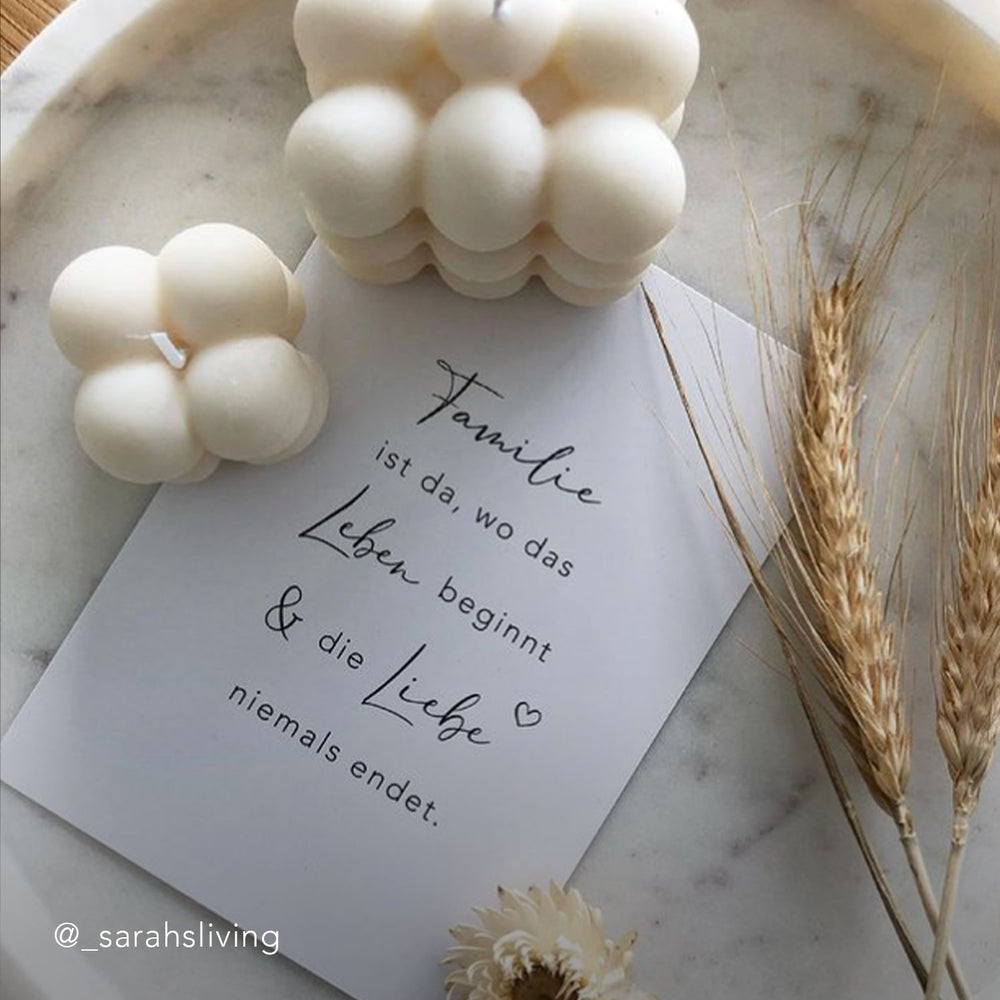 Familie
ist da, wo das
Leben beginnt
& die Liebe ♡
niemals endet.
@_sarahsliving